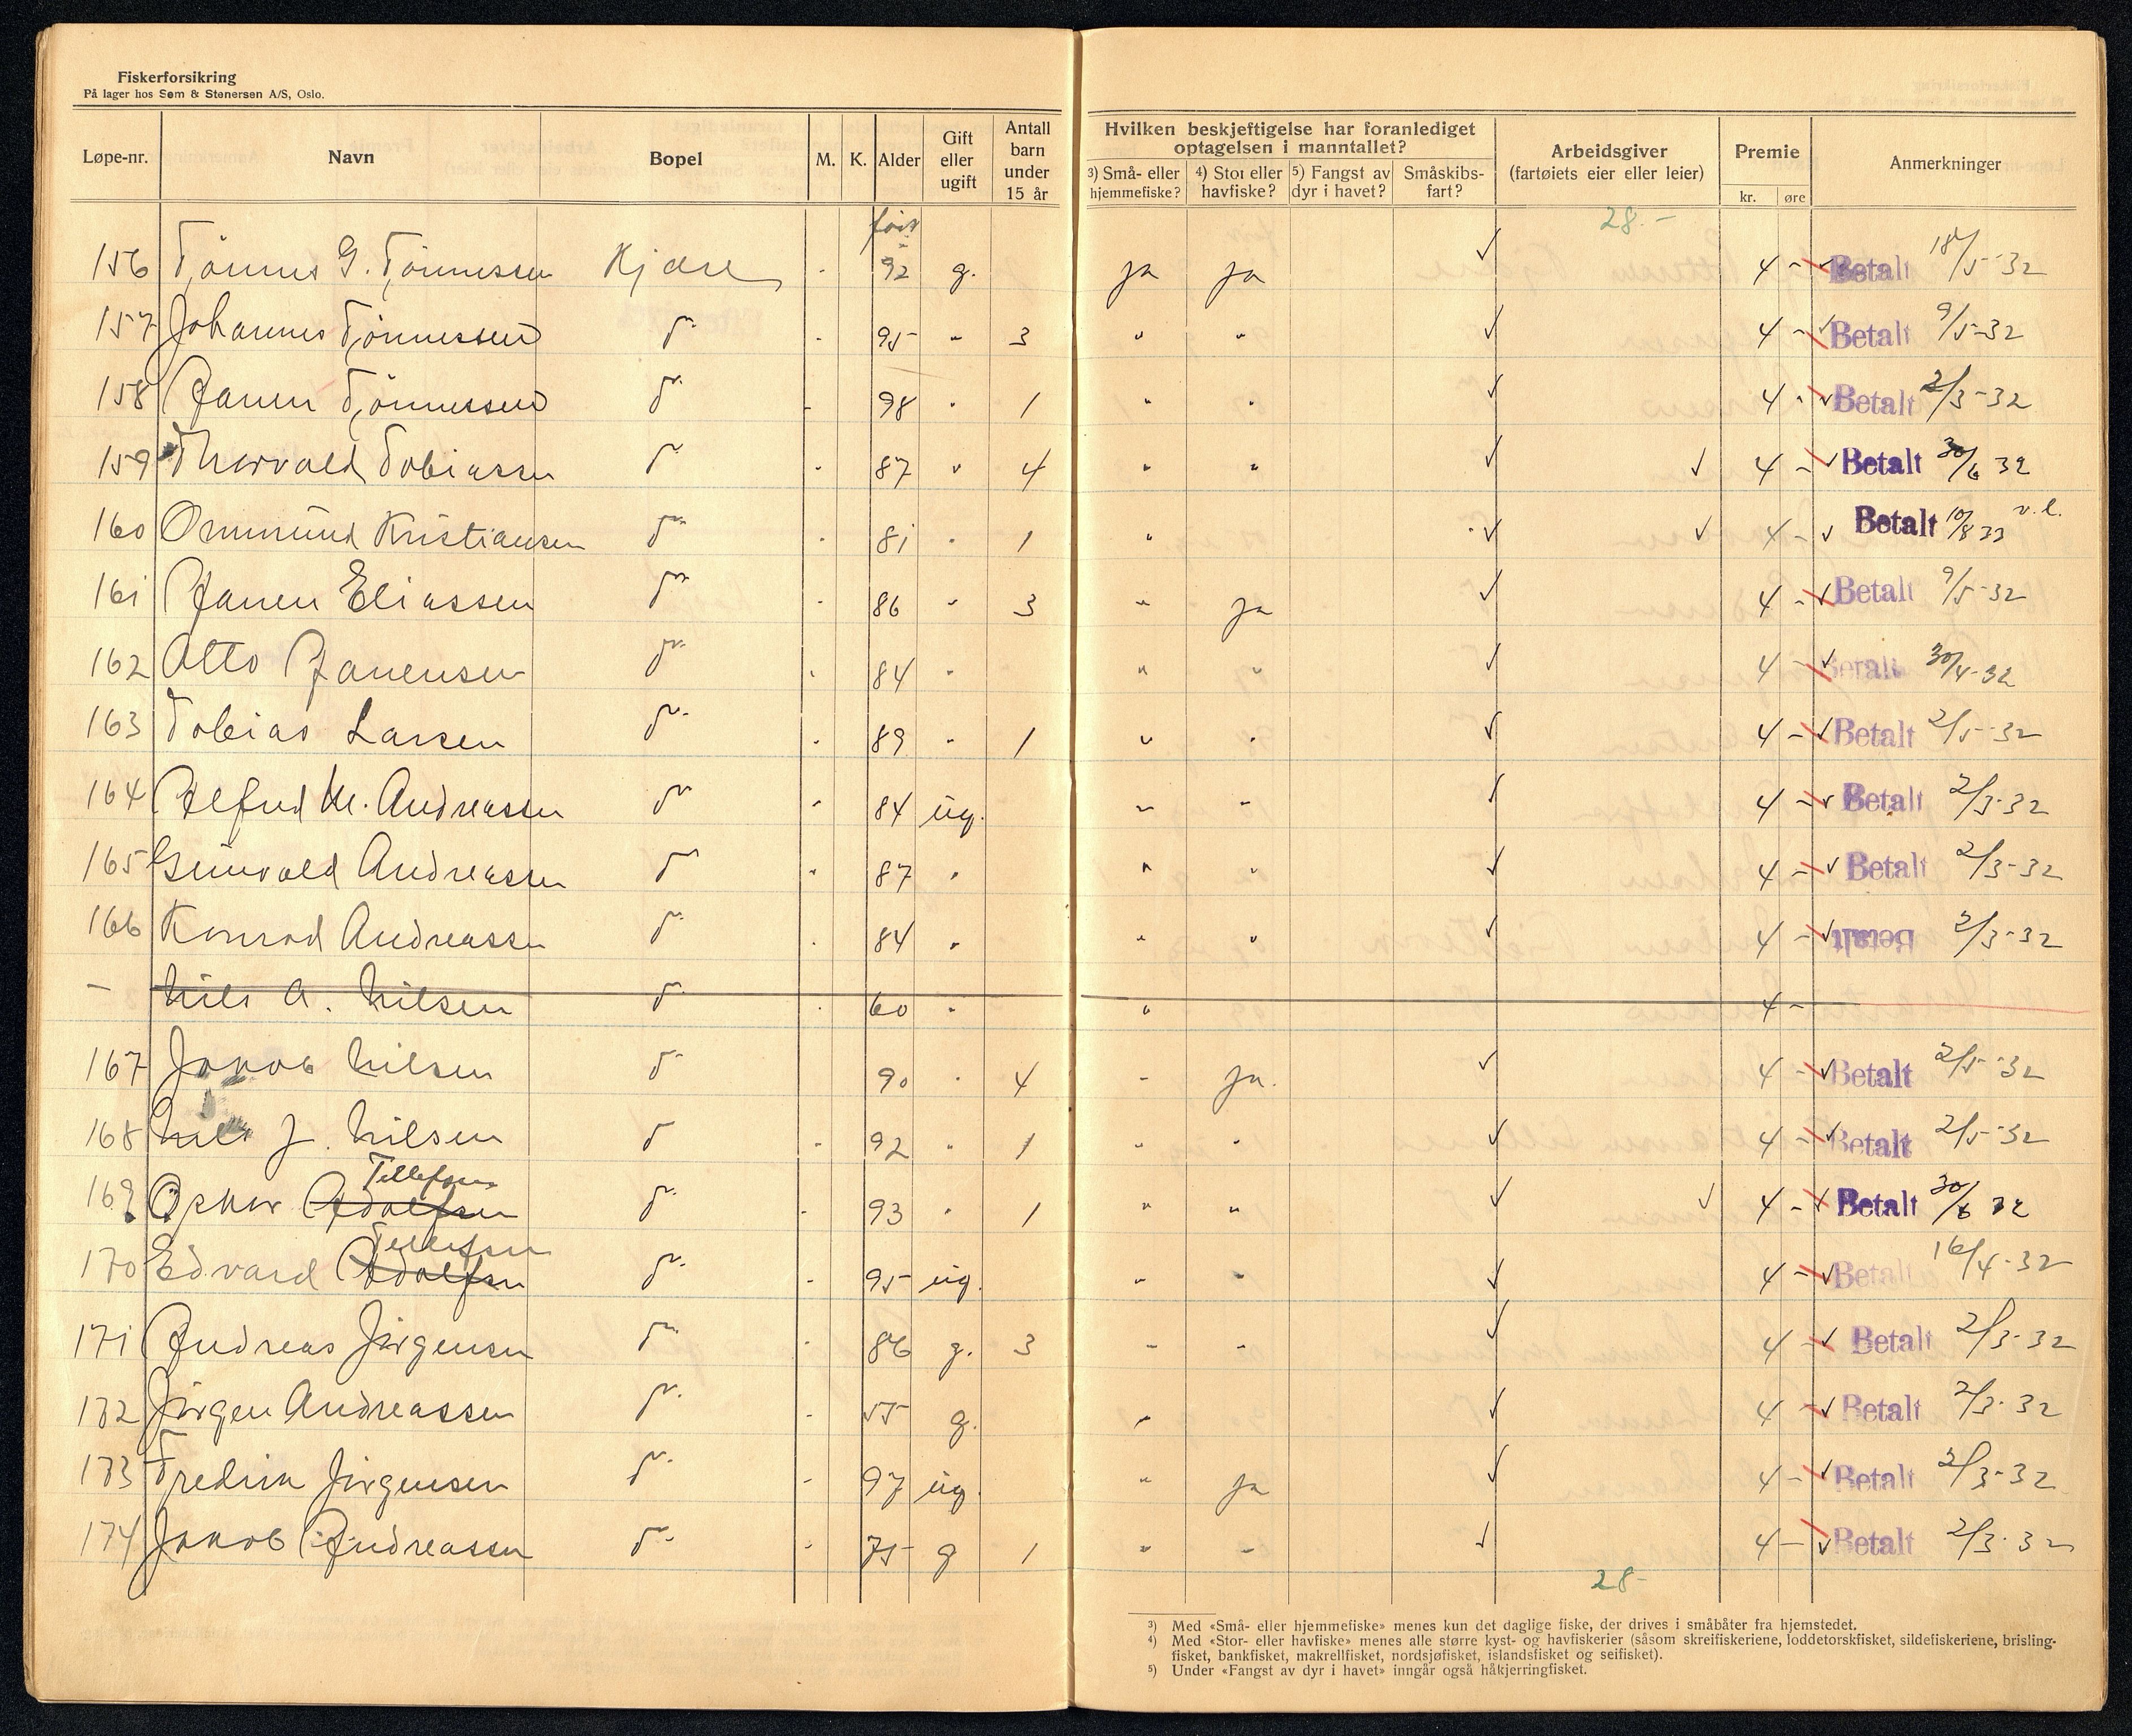 Fiskerforsikring
På lager hos Søm & Stenersen A/S, Oslo.
Løpe-nr. Navn Bopel M. K. Alder Gift eller ugift Antall barn under 15 år Hvilken beskjeftigelse har foranlediget optagelsen i manntallet? ³) Små- eller hjemmefiske? ⁴) Stor eller havfiske? ⁵) Fangst av dyr i havet? Småskibsfart? Arbeidsgiver (fartøiets eier eller leier) Premie kr. øre Anmerkninger
28.-
156 Tønnes G. Tønnessen Kjøre 92 g. ja ja ✓ 4 - Betalt 18/5-32
157 Johannes Tønnessen d 95 " 3 " " ✓ 4 - Betalt 9/5-32
158 Tønnessen d 98 " 1 " " ✓ 4 - Betalt 2/3-32
159 Thorvald Tobiassen d 87 " 4 " " ✓ ✓ 4 - Betalt 30/6 32
160 Ommund Kristiansen d 81 " 1 " ✓ ✓ 4 - Betalt 10/8 33 v.l.
161 Eliassen d 86 " 3 " ja ✓ 4 - Betalt 9/5-32
162 Otto d 84 " " " ✓ 4 - Betalt 30/4-32
163 Tobias Larsen d 89 " 1 " " ✓ 4 - Betalt 2/5-32
164 Alfred M. Andreassen d 84 ug. " " ✓ 4 - Betalt 2/3-32
165 Gunvald Andreassen d 87 " " " ✓ 4 - Betalt 2/3-32
166 Konrad Andreassen d 84 " " " ✓ 4 - Betalt 2/3-32
- Nils A. Nilsen d 60 " " 4 -
167 Jakob Nilsen d 90 " 4 " ja. ✓ 4 - Betalt 2/5-32
168 Nils J. Nilsen d 92 " 1 " " ✓ 4 - Betalt 2/5-32
Tellefsen
169 Oskar Adolfsen d 93 " 1 " " ✓ ✓ 4 - Betalt 30/6 32
Tellefsen
170 Edvard Adolfsen d 95 ug. " " ✓ 4 - Betalt 16/4-32
171 Andreas Jørgensen d 86 g. 3 " " ✓ 4 - Betalt 2/3-32
172 Jørgen Andreassen d 55 g. " ✓ 4 - Betalt 2/3-32
173 Fredrik Jørgensen d 97 ug. " ja ✓ 4 - Betalt 2/3-32
174 Jakob Andreassen d 75 g 1 " " ✓ 4 - Betalt 2/3-32
28-
³) Med «Små- eller hjemmefiske» menes kun det daglige fiske, der drives i småbåter fra hjemstedet.
⁴) Med «Stor- eller havfiske» menes alle større kyst- og havfiskerier (såsom skreifiskeriene, loddetorskfisket, sildefiskeriene, brisling-
fisket, bankfisket, makrellfisket, nordsjøfisket, islandsfisket og seifisket).
⁵) Under «Fangst av dyr i havet» inngår også håkjerringfisket.